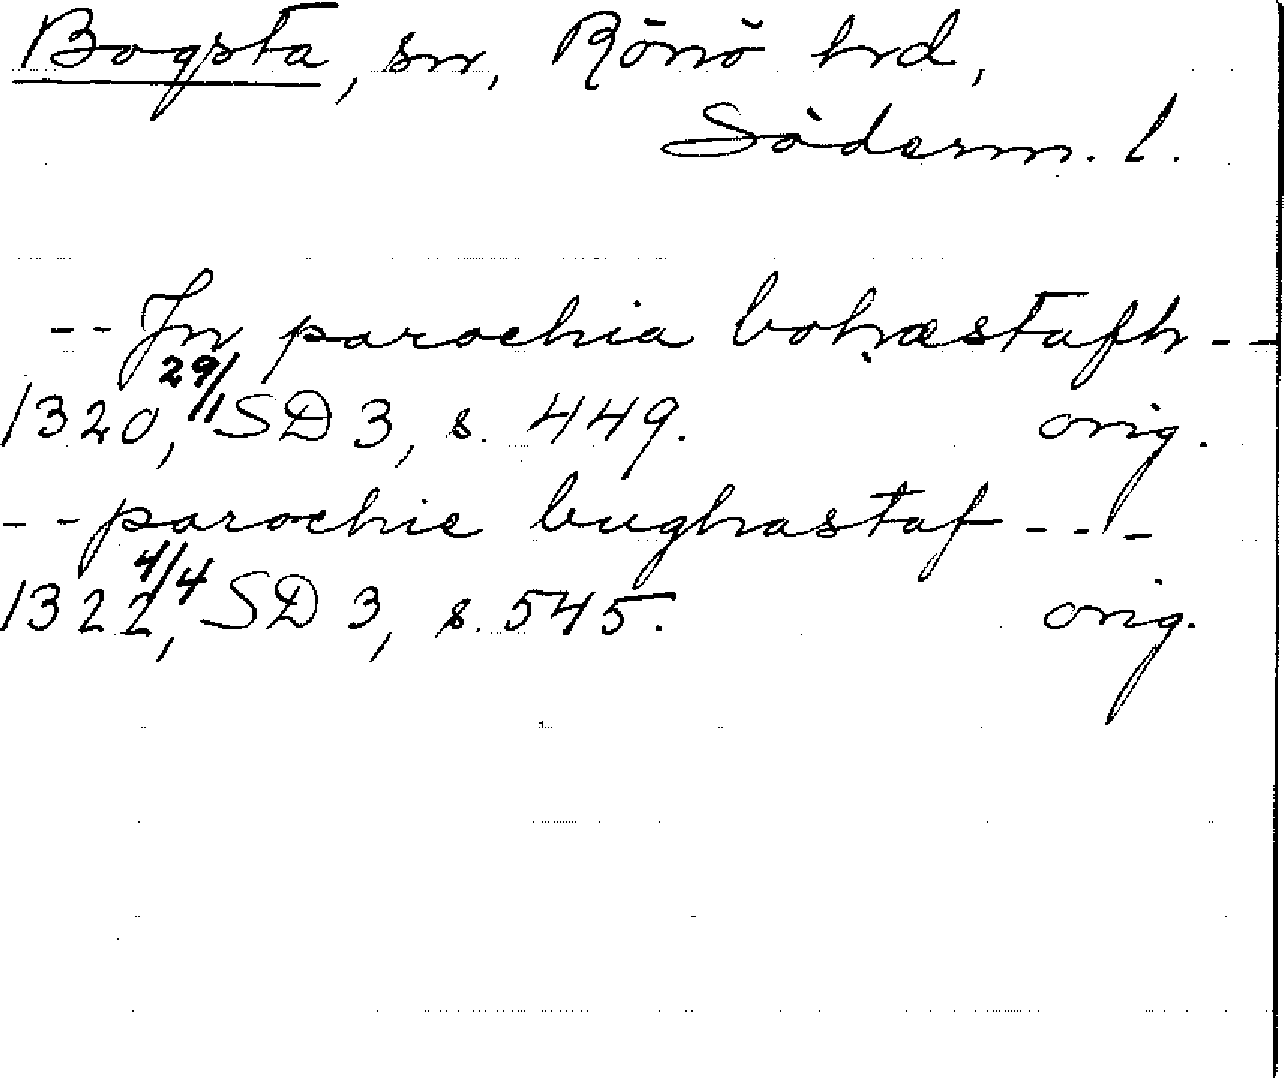 Bogsta, sn, Rönö hrd,
Söderm. l.
-- In parochia bohæstafh --
1320, 29/1 SD 3, s. 449. orig.
-- parochie bughastaf ---
1322, 4/4 SD 3, s. 545. orig.